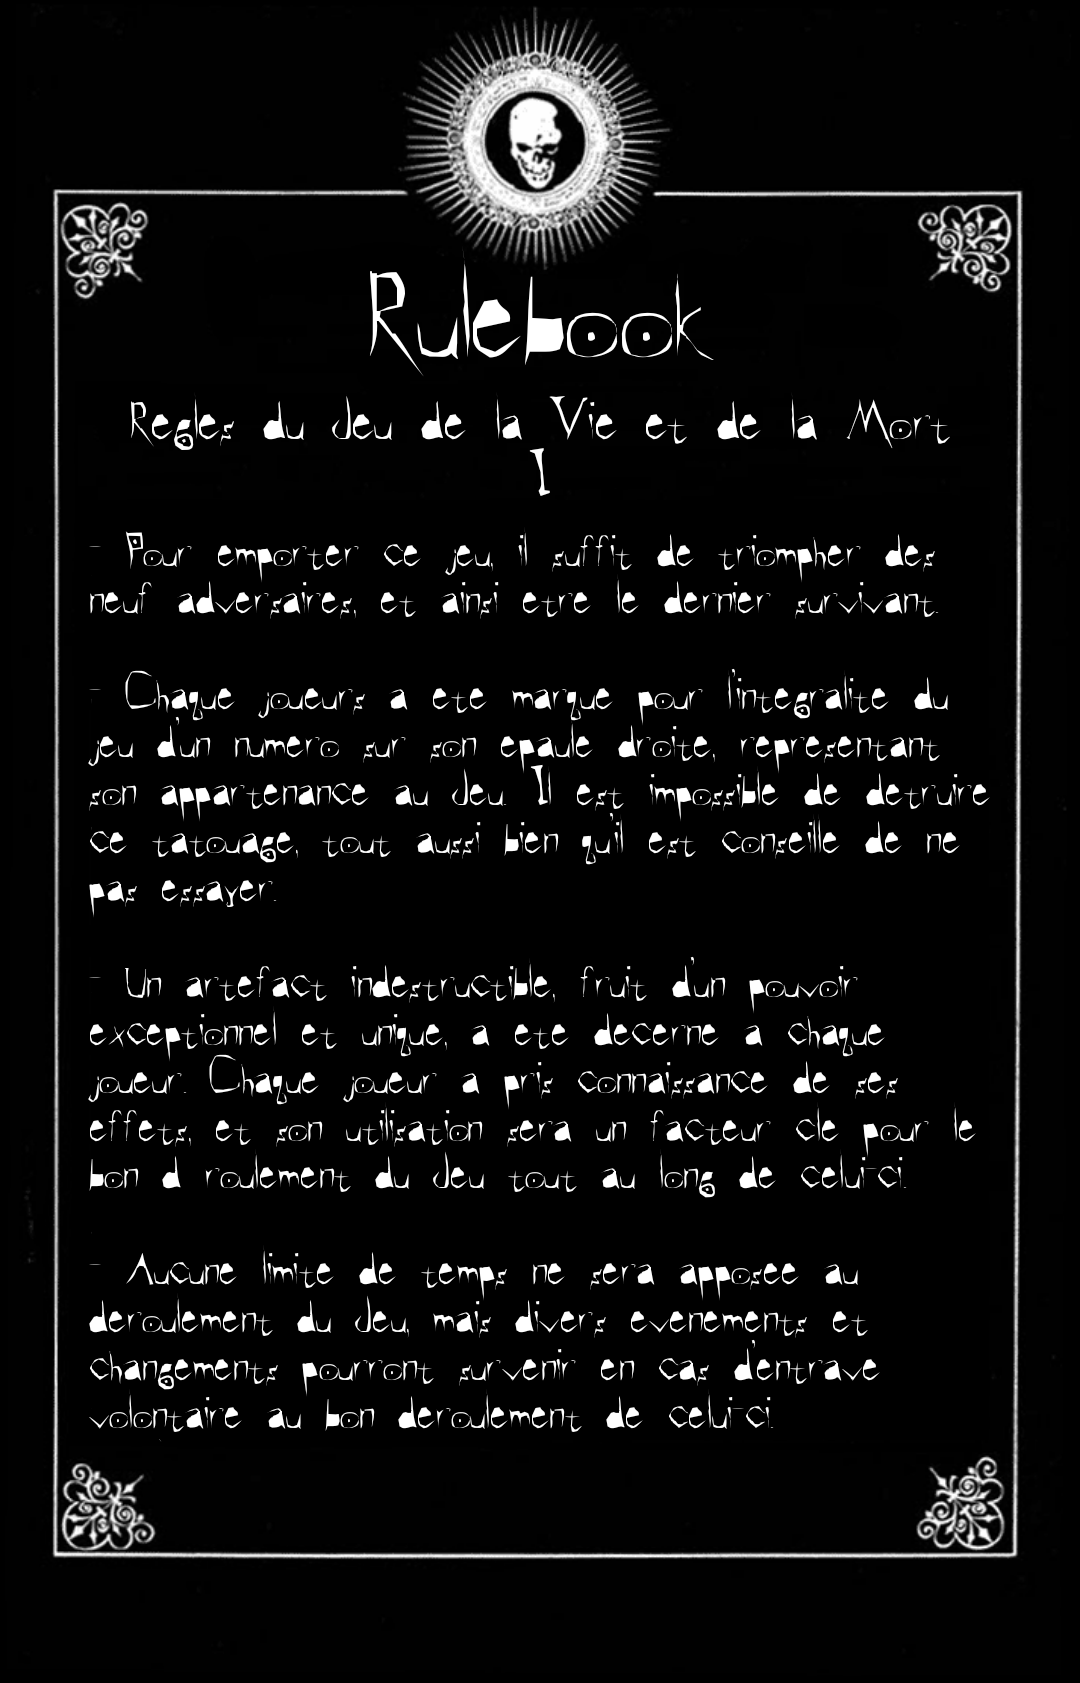 Rulebook
Regles du Jeu de la Vie et de la Mort
I
- Pour emporter ce jeu, il suffit de triompher des
neuf adversaires, et ainsi etre le dernier survivant.
- Chaque joueurs a ete marque pour l'integralite du
jeu d'un numero sur son epaule droite, representant
son appartenance au Jeu. Il est impossible de detruire
ce tatouage, tout aussi bien qu'il est conseille de ne
pas essayer.
- Un artefact indestructible, fruit d'un pouvoir
exceptionnel et unique, a ete decerne a chaque
joueur. Chaque joueur a pris connaissance de ses
effets, et son utilisation sera un facteur cle pour le
bon d roulement du Jeu tout au long de celui-ci.
- Aucune limite de temps ne sera apposee au
deroulement du Jeu, mais divers evenements et
changements pourront survenir en cas d'entrave
volontaire au bon deroulement de celui-ci.